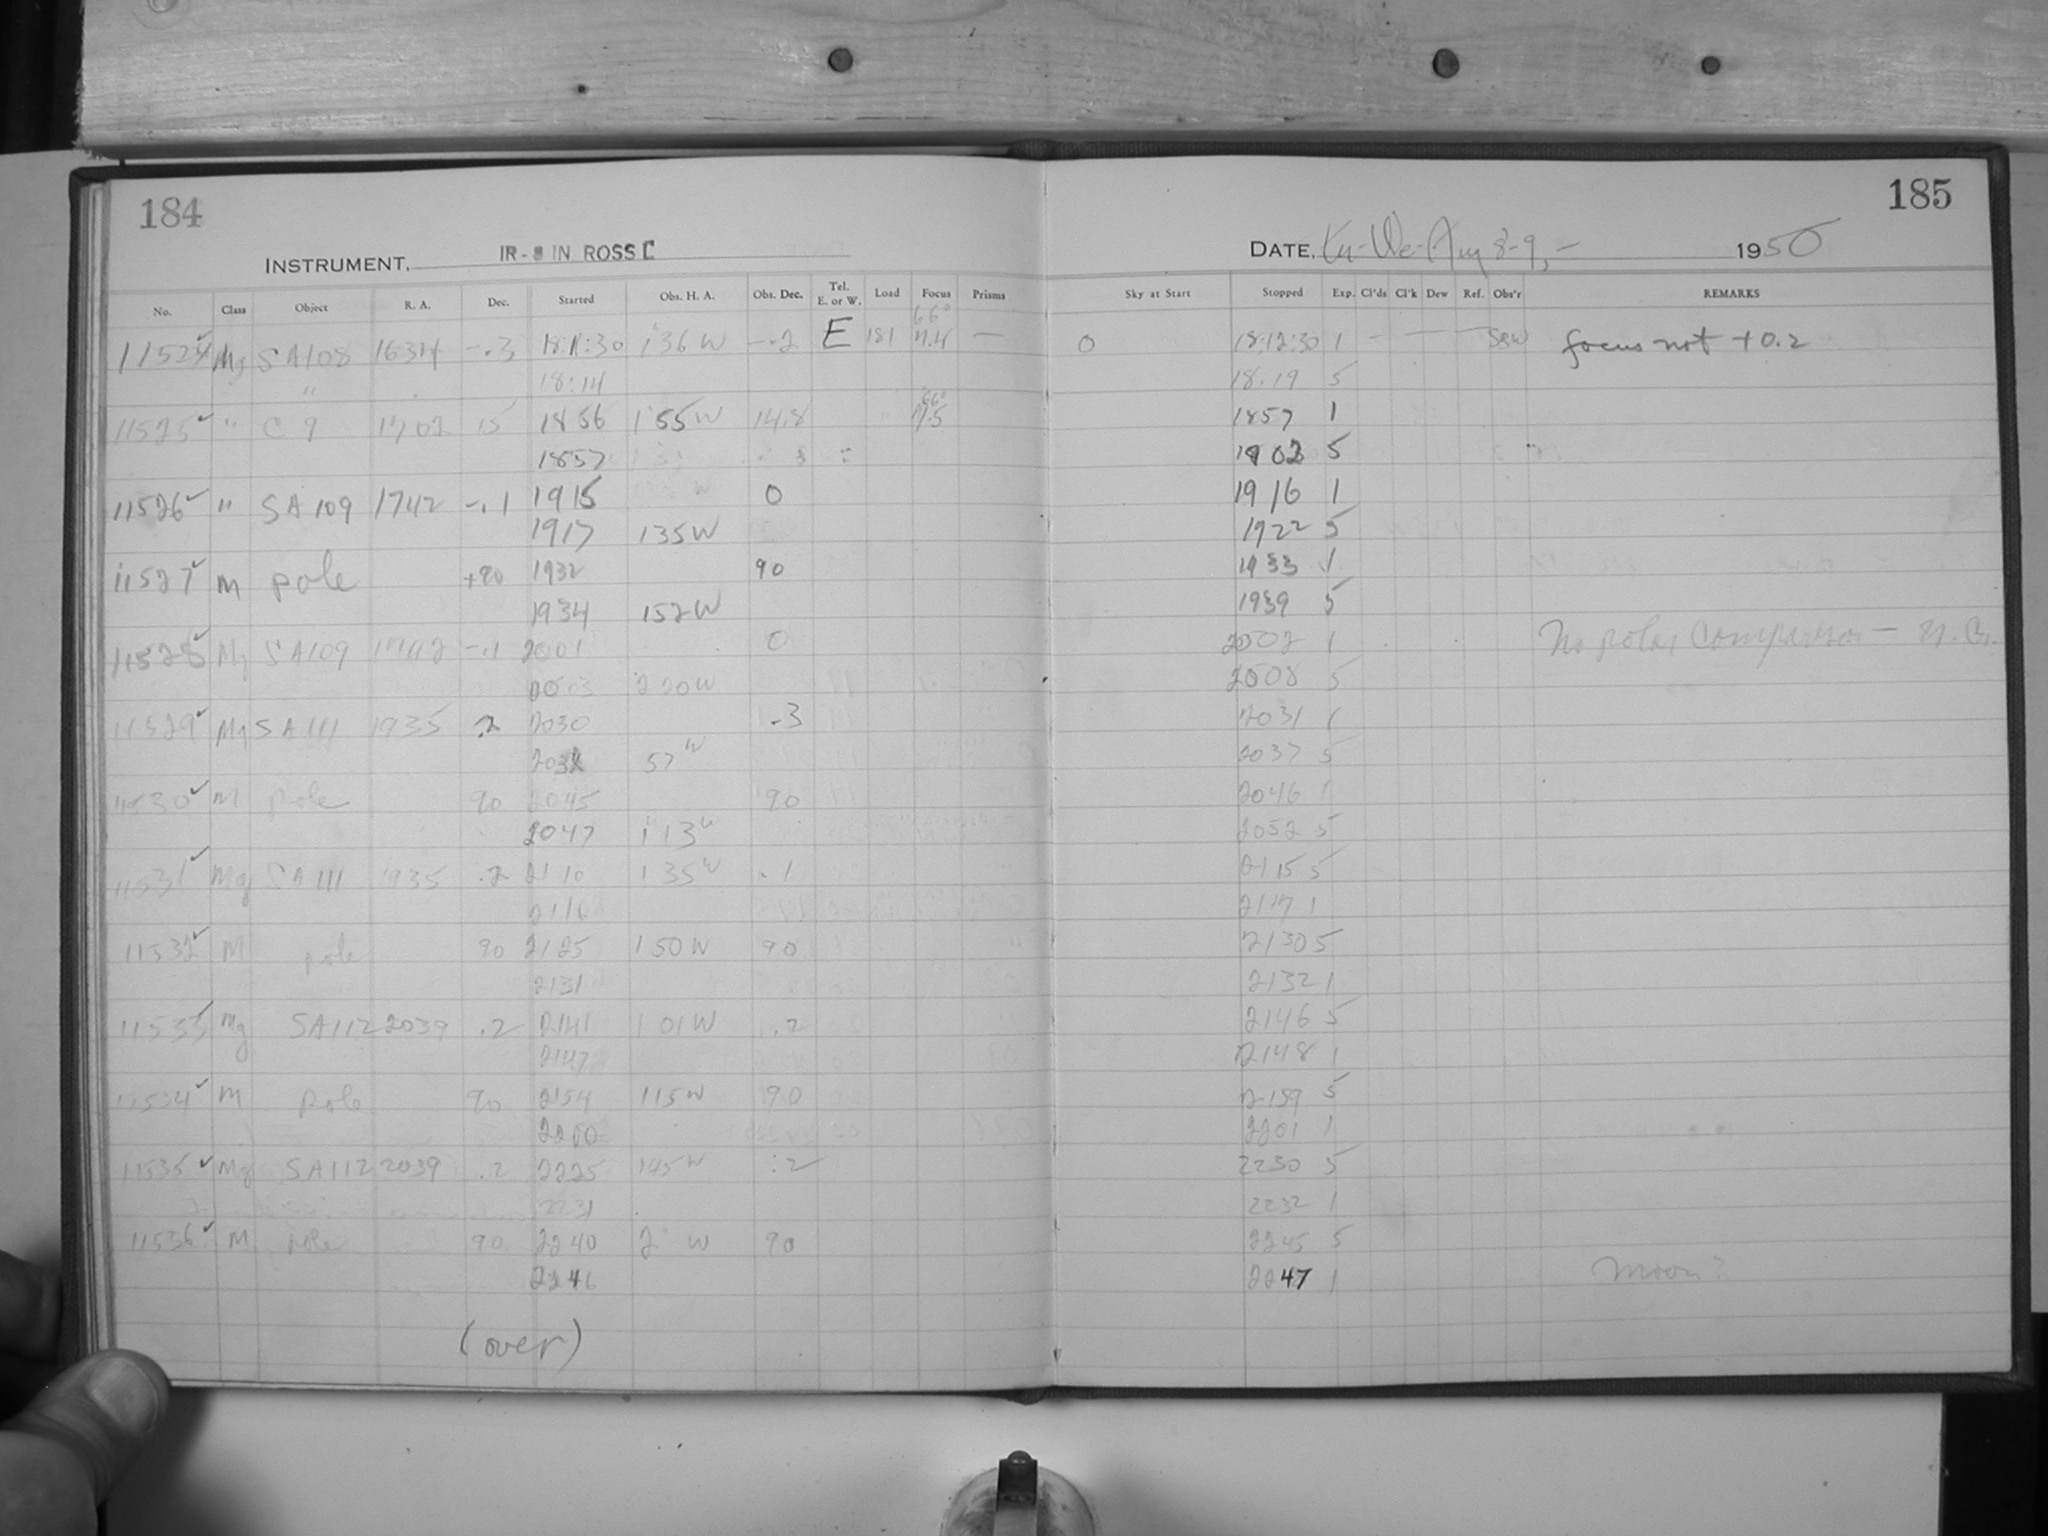 184
185
INSTRUMENT, IR-8 IN. ROSS C
DATE, Tu-We-Aug 8-9, - 1950
No. Class Object R. A. Dec. Started Obs. H. A. Obs. Dec. Tel. E. or W. Load Focus Prisms Sky at Start Stopped Exp. Cl'ds Cl'k Dew Ref. Obs'r REMARKS
66°
11524 ✓ Mg SA108 1634 -.3 18:11:30 1 36 W -.2 E 181 7.4 — 0 18:12:30 1 - — — focus not +0.2
" 18:14 18.19 5
66°
11525 ✓ " C 9 1702 15 1856 1 55 W 14.8 7.5 1857 1
1857 1902 5
11526 ✓ " SA 109 1742 -.1 1915 0 1916 1
1917 135W 1922 5
11527 ✓ M pole +90 1932 90 1933 1
1934 152W 1939 5
11528 ✓ Mg SA109 1742 -.1 2001 0 2002 1 No polar comparison — N.G.
2003 220W 2008 5
11529 ✓ Mg SA 111 1935 .2 2030 .3 2031 1
2032 57 W 2037 5
11530 ✓ M pole 90 2045 90 2046 1
2047 1 13 W 2052 5
11531 ✓ Mg SA 111 1935 .2 2110 1 35 W .1 2115 5
2116 2117 1
11532 ✓ M pole 90 2125 1 50 W 90 2130 5
2131 2132 1
11533 ✓ Mg SA112 2039 .2 2141 1 01 W .2 2146 5
2147 2148 1
11534 ✓ M pole 90 2154 115 W 90 2159 5
2200 2201 1
11535 ✓ Mg SA112 2039 .2 2225 145 W .2 2230 5
2231 2232 1
11536 ✓ M pole 90 2240 2 W 90 2245 5
2246 2247 1 moon?
(over)